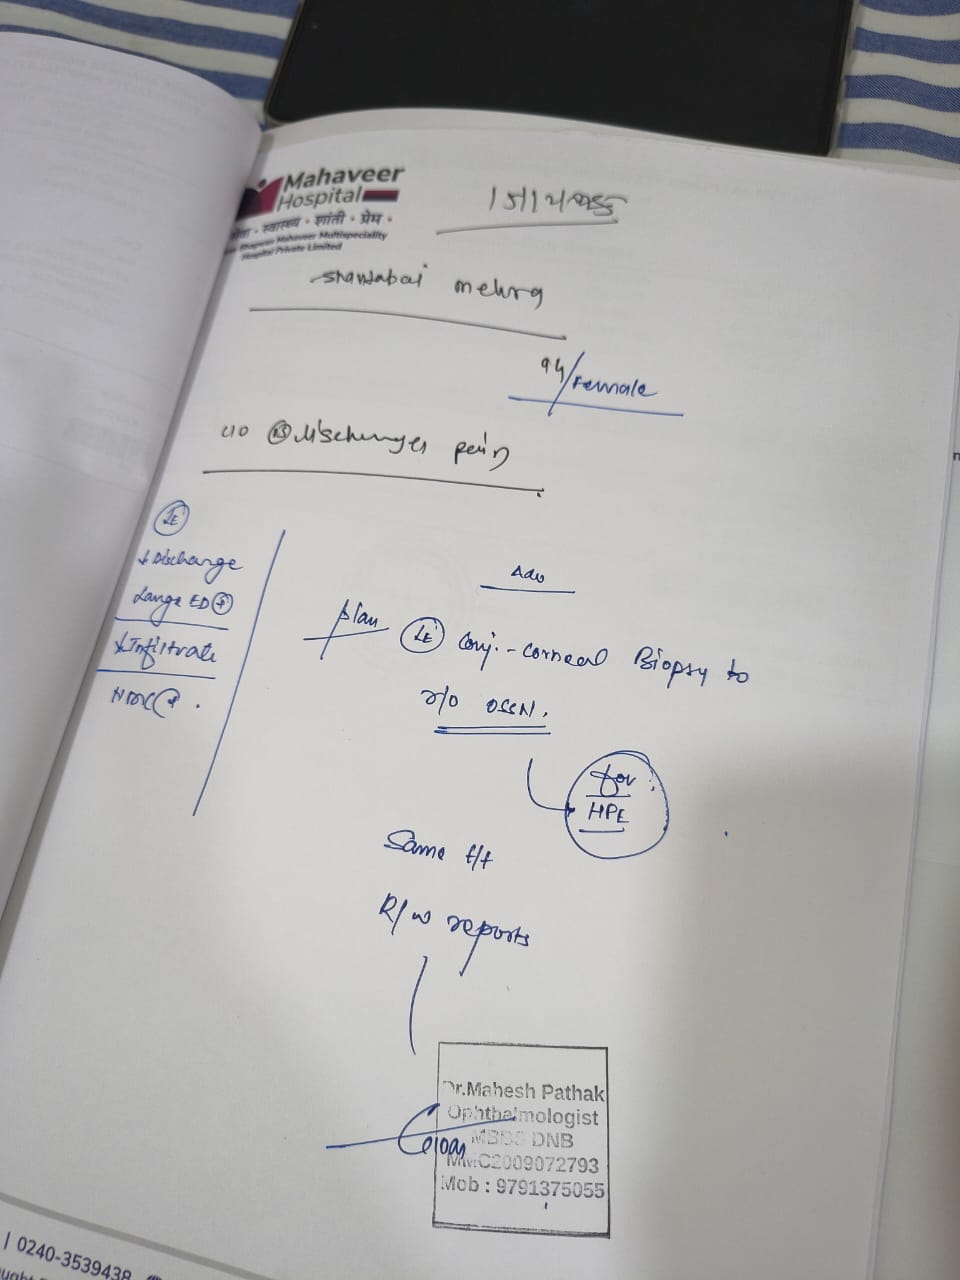 Mahaveer
Hospital
स्वास्थ्य • शांती • प्रेम •
Bhagwan Mahaveer Multispeciality
Hospital Private Limited
mehra
94/Female
pain
LE
↓ Discharge
Large ED +
↓ Infiltrate
Adv
plan LE Conj.-corneal Biopsy to
r/o OSSN.
for
HPE
Same t/t
R/w reports
Dr.Mahesh Pathak
Ophthalmologist
MBBS DNB
MMC2009072793
Mob : 9791375055
| 0240-3539438